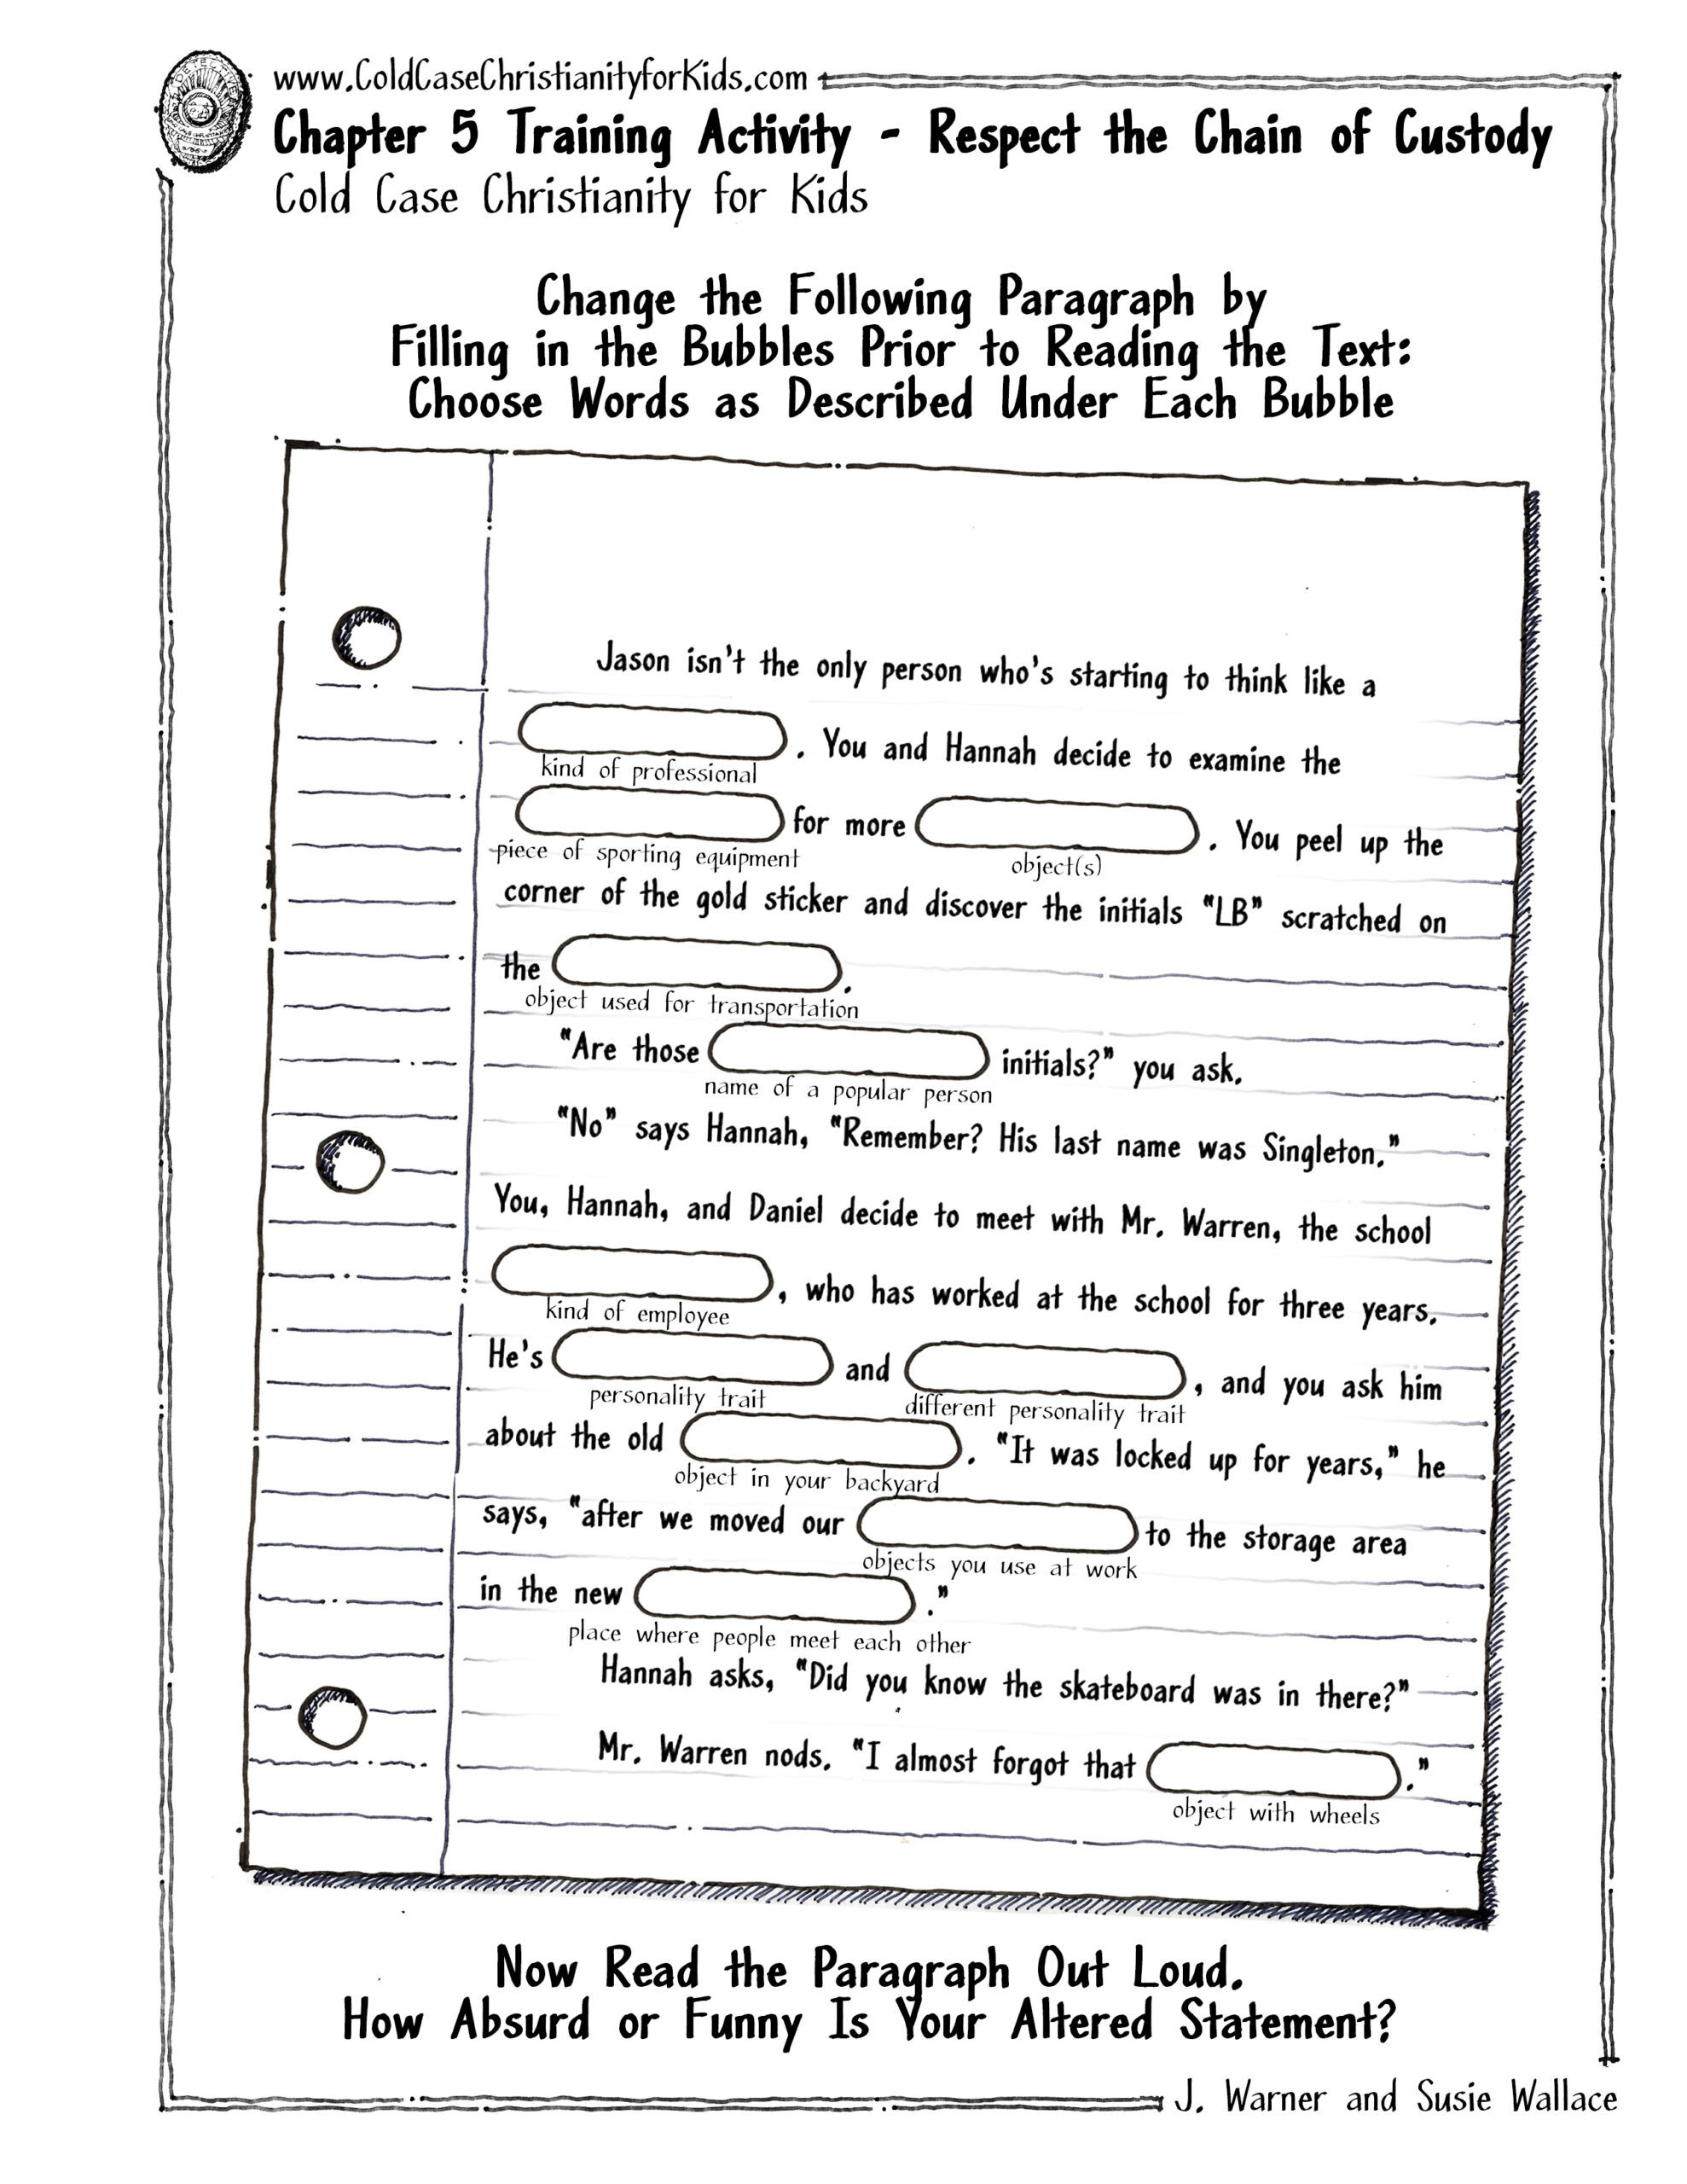 www.ColdCaseChristianityforKids.com
Chapter 5 Training Activity - Respect the Chain of Custody
Cold Case Christianity for Kids
Change the Following Paragraph by
Filling in the Bubbles Prior to Reading the Text:
Choose Words as Described Under Each Bubble
Jason isn't the only person who's starting to think like a
. You and Hannah decide to examine the
kind of professional
for more . You peel up the
piece of sporting equipment object(s)
corner of the gold sticker and discover the initials "LB" scratched on
the .
object used for transportation
"Are those initials?" you ask.
name of a popular person
"No" says Hannah, "Remember? His last name was Singleton."
You, Hannah, and Daniel decide to meet with Mr. Warren, the school
, who has worked at the school for three years.
kind of employee
He's and , and you ask him
personality trait different personality trait
about the old . "It was locked up for years," he
object in your backyard
says, "after we moved our to the storage area
objects you use at work
in the new ."
place where people meet each other
Hannah asks, "Did you know the skateboard was in there?"
Mr. Warren nods. "I almost forgot that ."
object with wheels
Now Read the Paragraph Out Loud.
How Absurd or Funny Is Your Altered Statement?
J. Warner and Susie Wallace